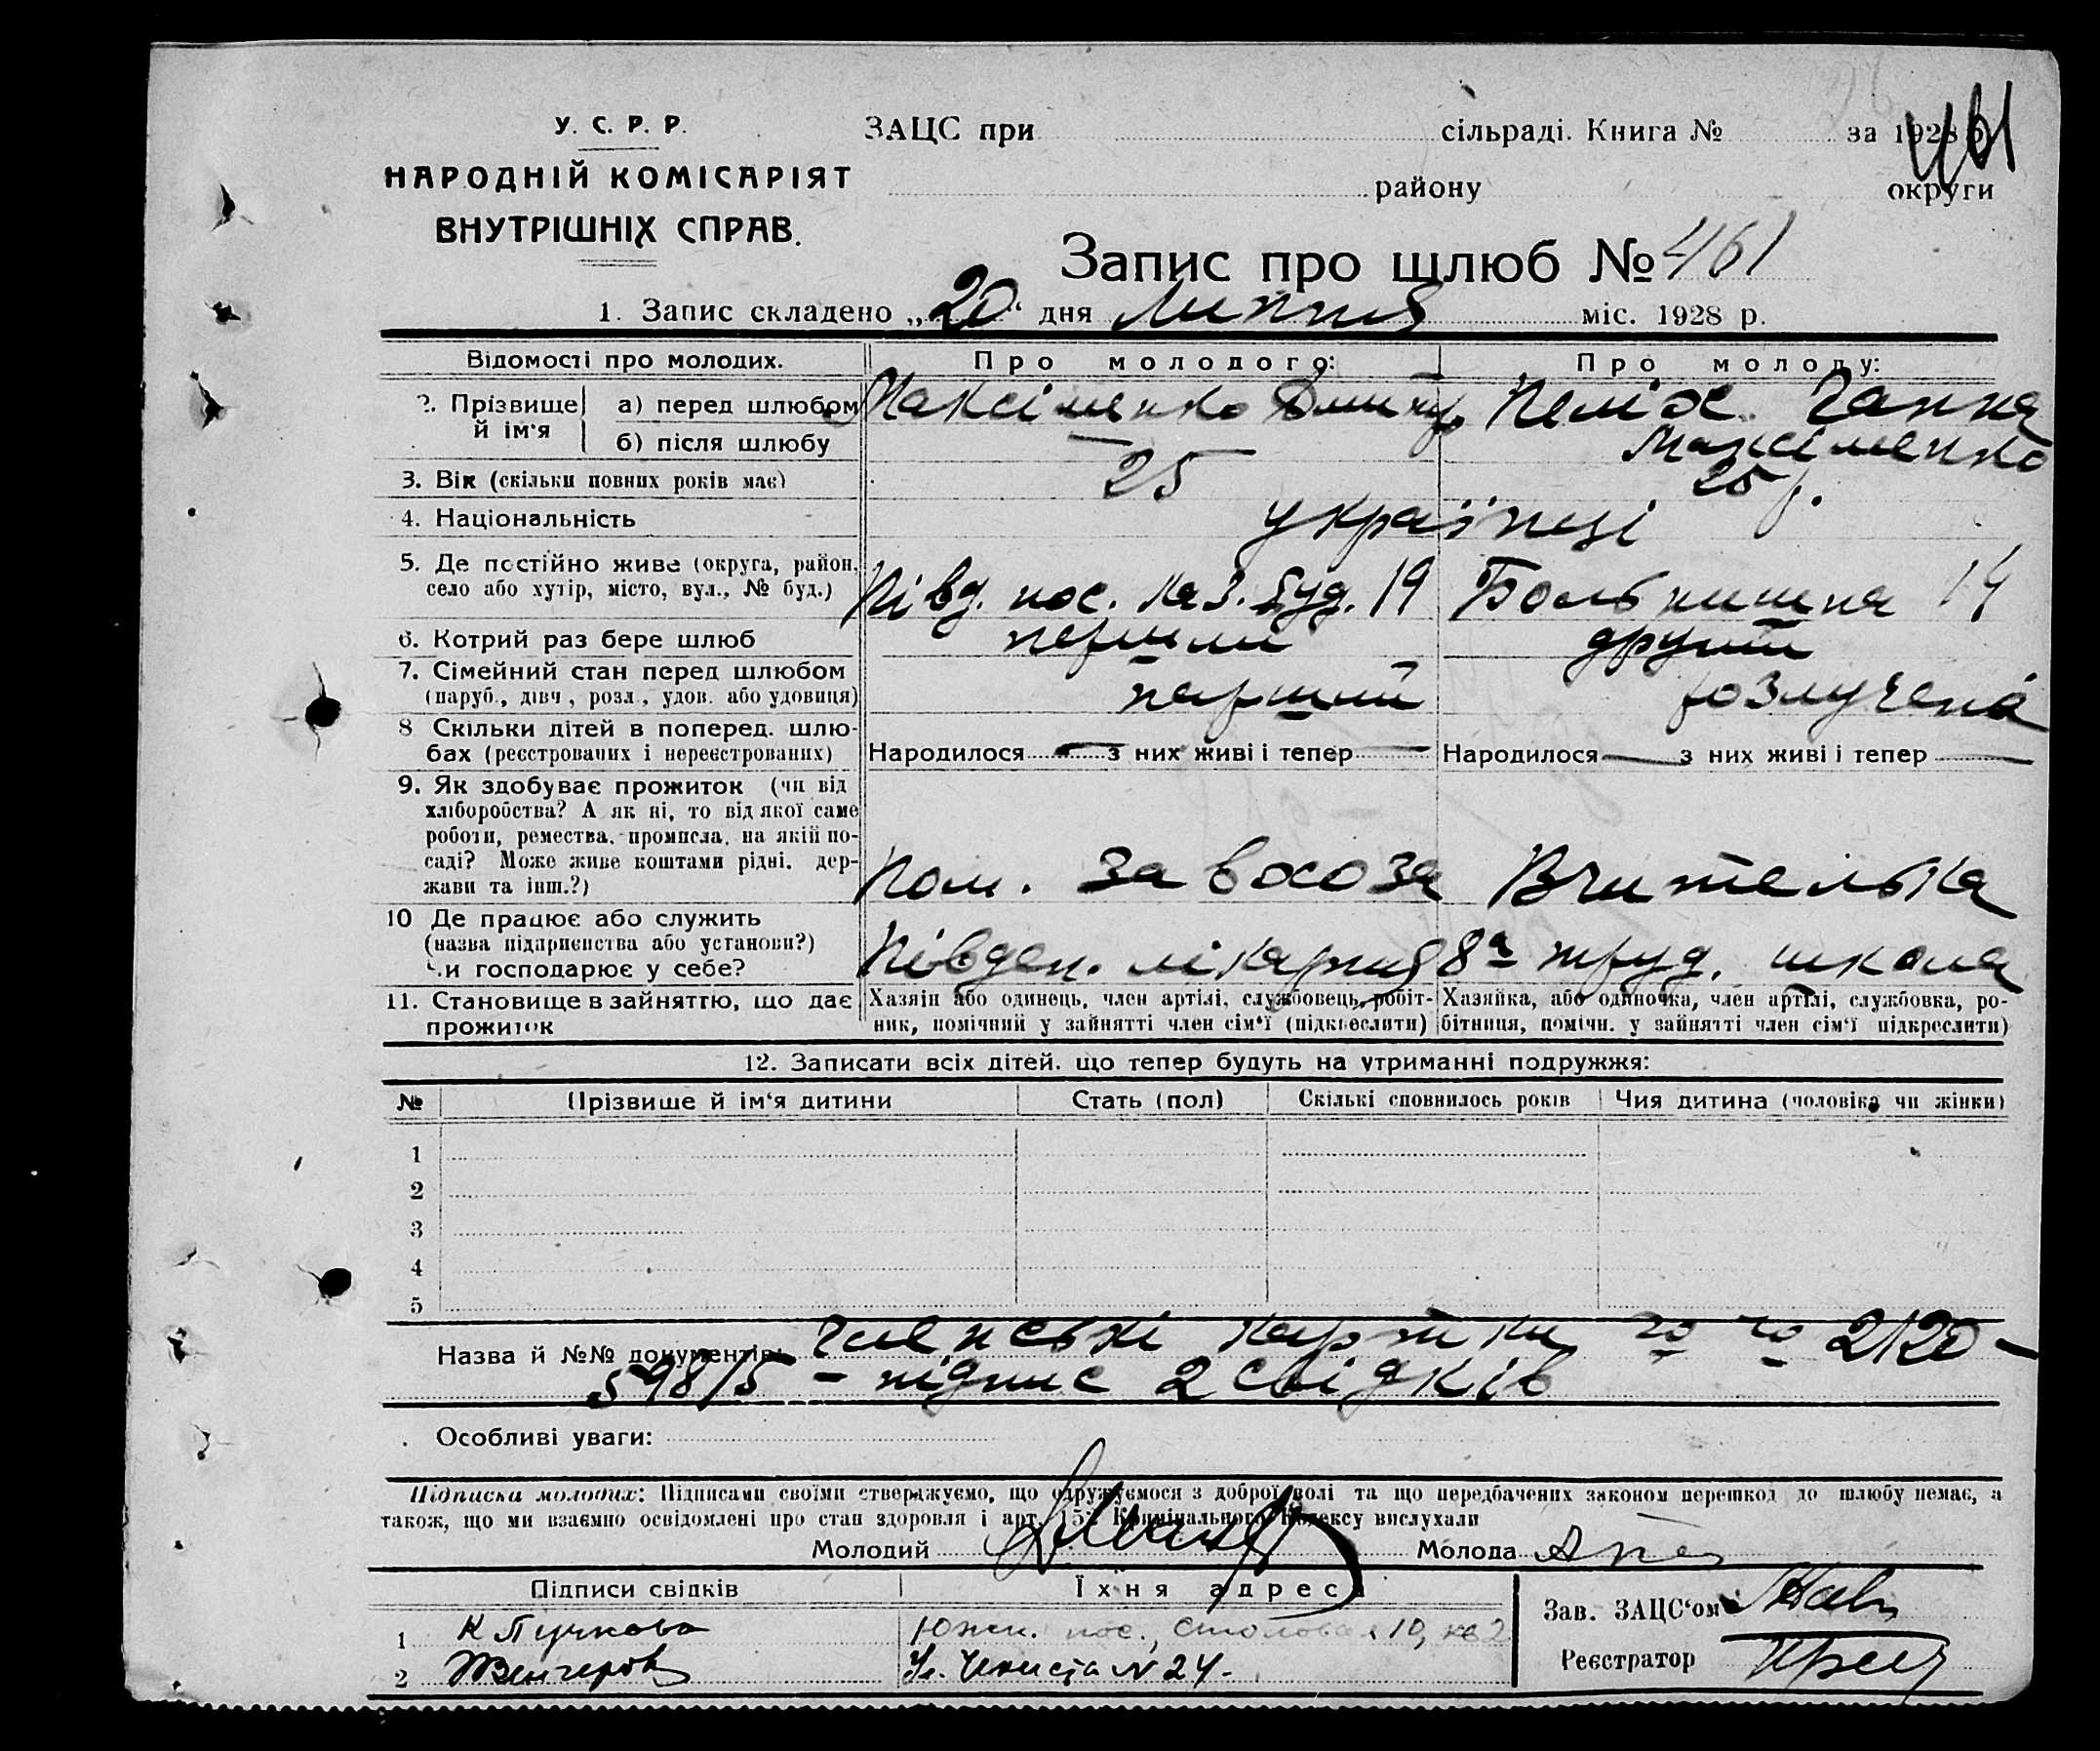 461
У. С. Р. Р.
НАРОДНІЙ КОМІСАРІЯТ
ВНУТРІШНІХ СПРАВ.
ЗАЦС при сільраді. Книга № за 1928 р.
району округи
Запис про шлюб № 461
1. Запис складено „20“ дня Липня міс. 1928 р.
Відомості про молодих. Про молодого: Про молоду:
2. Прізвище й ім'я а) перед шлюбом Максіменко Дмитр Пеліх Ганна
б) після шлюбу — Максіменко
3. Вік (скільки повних років має) 25 25 р.
4. Національність українці
5. Де постійно живе (округа, район,
село або хутір, місто, вул., № буд.) Півд. пос. Каз. буд. 19 Больнишна 14
6. Котрий раз бере шлюб перший другий
7. Сімейний стан перед шлюбом
(паруб., дівч., розл., удов. або удовиця) перший розлучена
8 Скільки дітей в поперед. шлю-
бах (реєстрованих і нереєстрованих) Народилося — з них живі і тепер — Народилося — з них живі і тепер —
9. Як здобуває прожиток (чи від
хліборобства? А як ні, то від якої саме
роботи, ремества, промисла, на якій по-
саді? Може живе коштами рідні, дер-
жави та інш.?) Пом. завхоза Вчителька
10 Де працює або служить
(назва підприємства або установи?)
Чи господарює у себе? Півден. лікарня 8а труд. школа
11. Становище в зайняттю, що дає
прожиток
Хазяїн або одинець, член артілі, службовець, робіт-
ник, помічний у зайнятті член сім'ї (підкреслити)
Хазяйка, або одиночка, член артілі, службовка, ро-
бітниця, помічн. у зайнятті член сім'ї підкреслити)
12. Записати всіх дітей, що тепер будуть на утриманні подружжя:
№ Прізвише й ім'я дитини Стать (пол) Скількі сповнилось років Чия дитина (чоловіка чи жінки)
1
2
3
4
5
Назва й №№ документів: Членські картки 2120 —
598/5 — підпис 2 свідків
Особливі уваги:
Підписка молодих: Підписами своїми стверджуємо, що одружуємося з доброї волі та що передбачених законом перешкод до шлюбу немає, а
також, що ми взаємно освідомлені про стан здоровля і арт. 15 Кримінального Кодексу вислухали
Молодий Молода
Підписи свідків Їхня адреса
Зав. ЗАЦС'ом
1 К Пучкова Южн. пос., Столовая 10, кв 2
Реєстратор
2 Венгеров Ул. N 24.